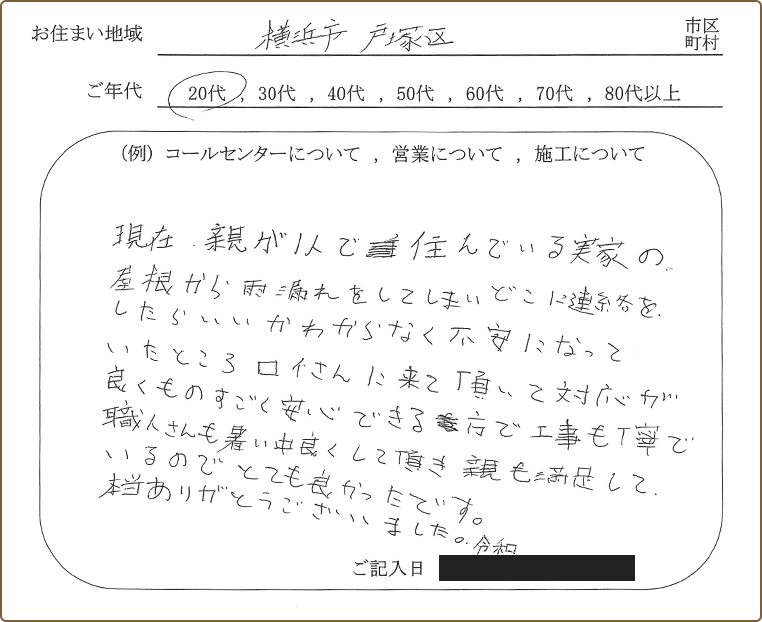 お住まい地域 横浜市 戸塚区 市区町村
ご年代 20代 , 30代 , 40代 , 50代 , 60代 , 70代 , 80代以上
(例) コールセンターについて , 営業について , 施工について
現在 親が1人で住んでいる実家の
屋根から雨漏れをしてしまいどこに連絡を
したらいいかわからなく不安になって
いたところ ロイさんに来て頂いて対応が
良くものすごく安心できる方で工事も丁寧で
職人さんも暑い中良くして頂き親も満足して
いるのでとても良かったです。
本当ありがとうございいました。
令和
ご記入日